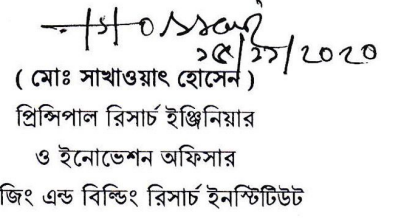 ২৫/১১/২০২০
( মোঃ সাখাওয়াৎ হোসেন )
প্রিন্সিপাল রিসার্চ ইঞ্জিনিয়ার
ও ইনোভেশন অফিসার
জিং এন্ড বিল্ডিং রিসার্চ ইনস্টিটিউট